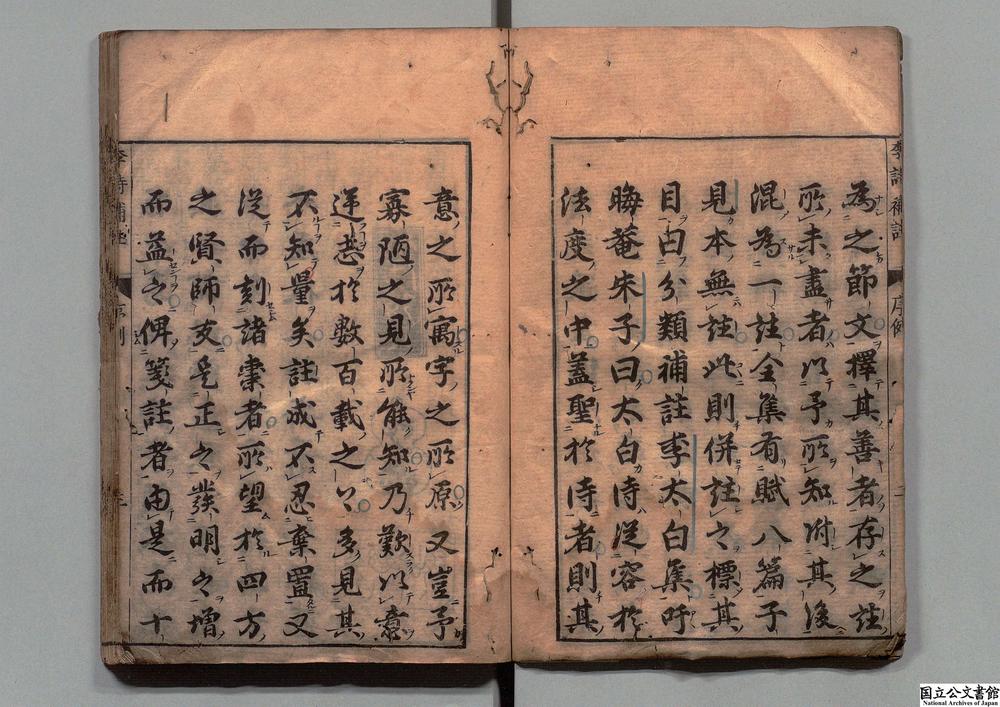 為之節文擇其善者存之註
所未盡者以予所知附其後
混為一註全集有賦八篇子
見本無註此則併註之標其
目曰分類補註李太白集吁
晦菴朱子曰太白詩從容於
法度之中蓋聖於詩者則其
意之所寓字之所原又豈予
寡陋之見所能知乃歎以意
逆志於數百載之上多見其
不知量矣註成不忍棄置又
從而刻諸棗者所望於四方
之賢師友是正之發明之增
而益之俾箋註者由是而十
李詩補註
序例
国立公文書館
National Archives of Japan